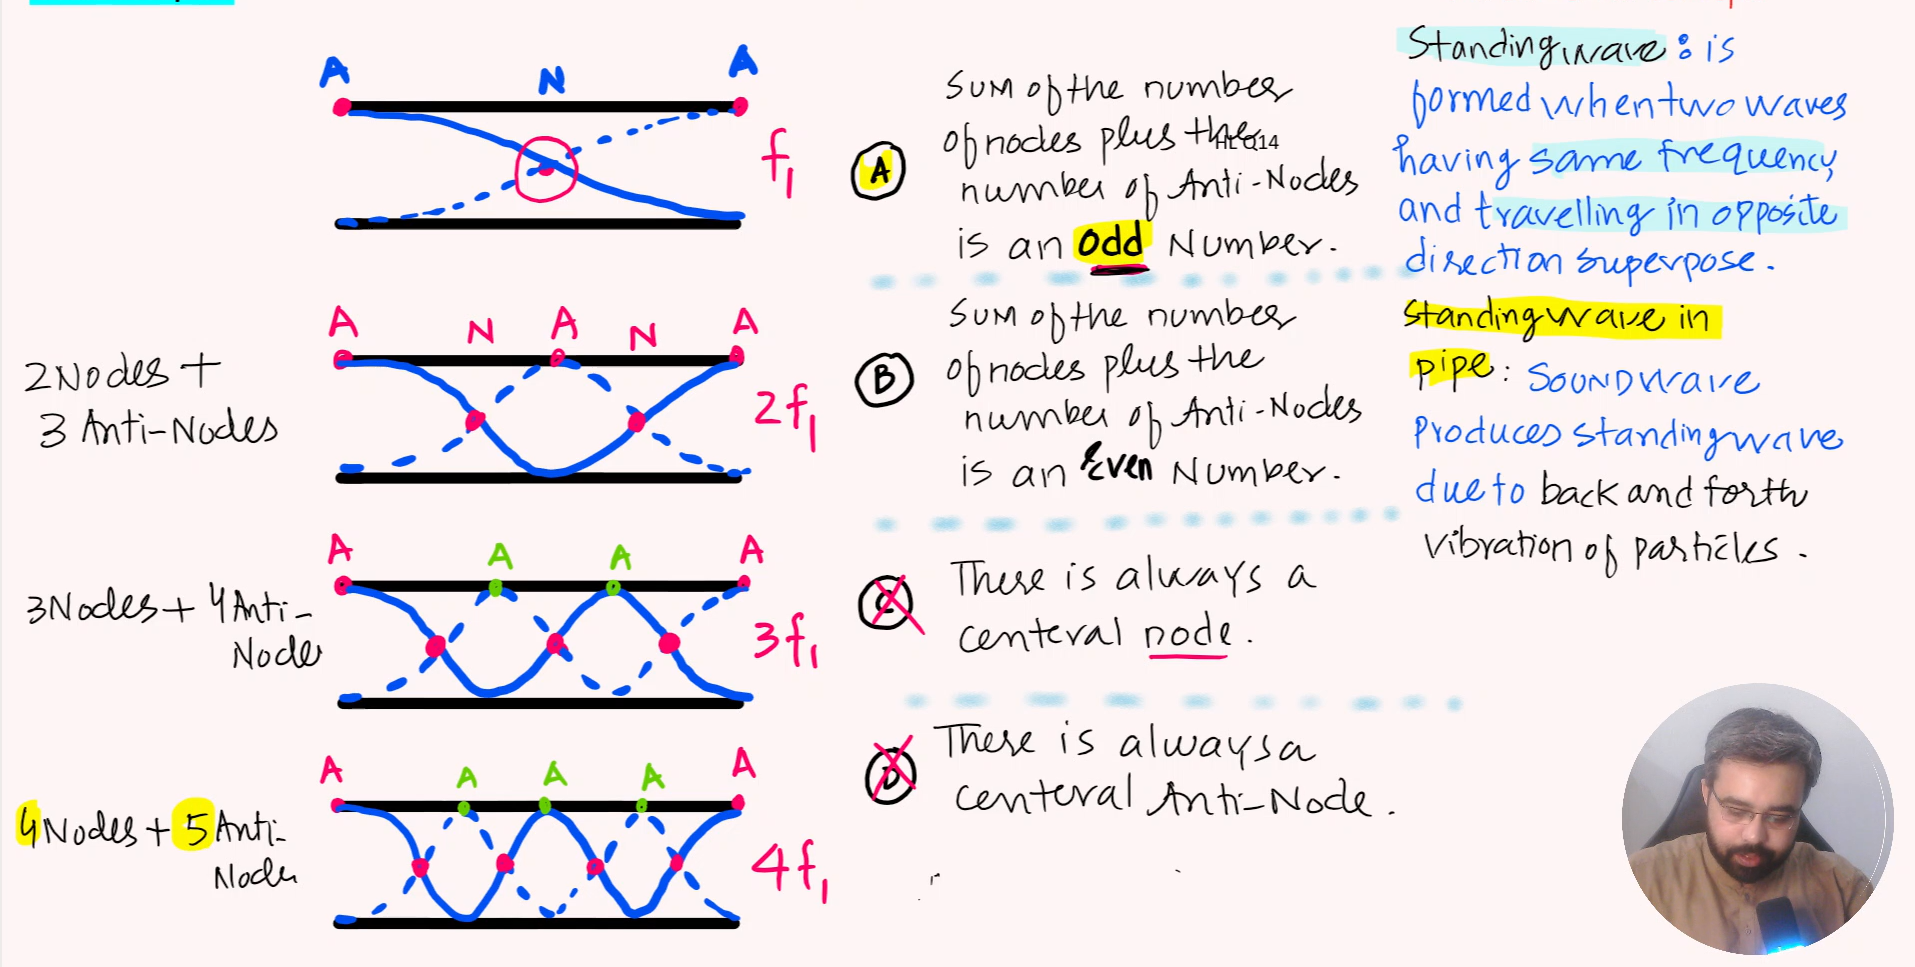 A N A
f1
A N A N A
2Nodes +
3 Anti-Nodes
2f1
A A A A
3Nodes + 4Anti-
Nodes
3f1
A A A A A
4Nodes + 5Anti-
Node
4f1
A
Sum of the number
of nodes plus the
HL Q14
number of Anti-Nodes
is an odd Number.
B
Sum of the number
of nodes plus the
number of Anti-Nodes
is an Even Number.
C
There is always a
centeral node.
D
There is always a
centeral Anti-Node.
Standing wave : is
formed when two waves
having same frequency
and travelling in opposite
direction superpose.
Standing wave in
pipe : Sound wave
Produces standing wave
due to back and forth
vibration of particles.